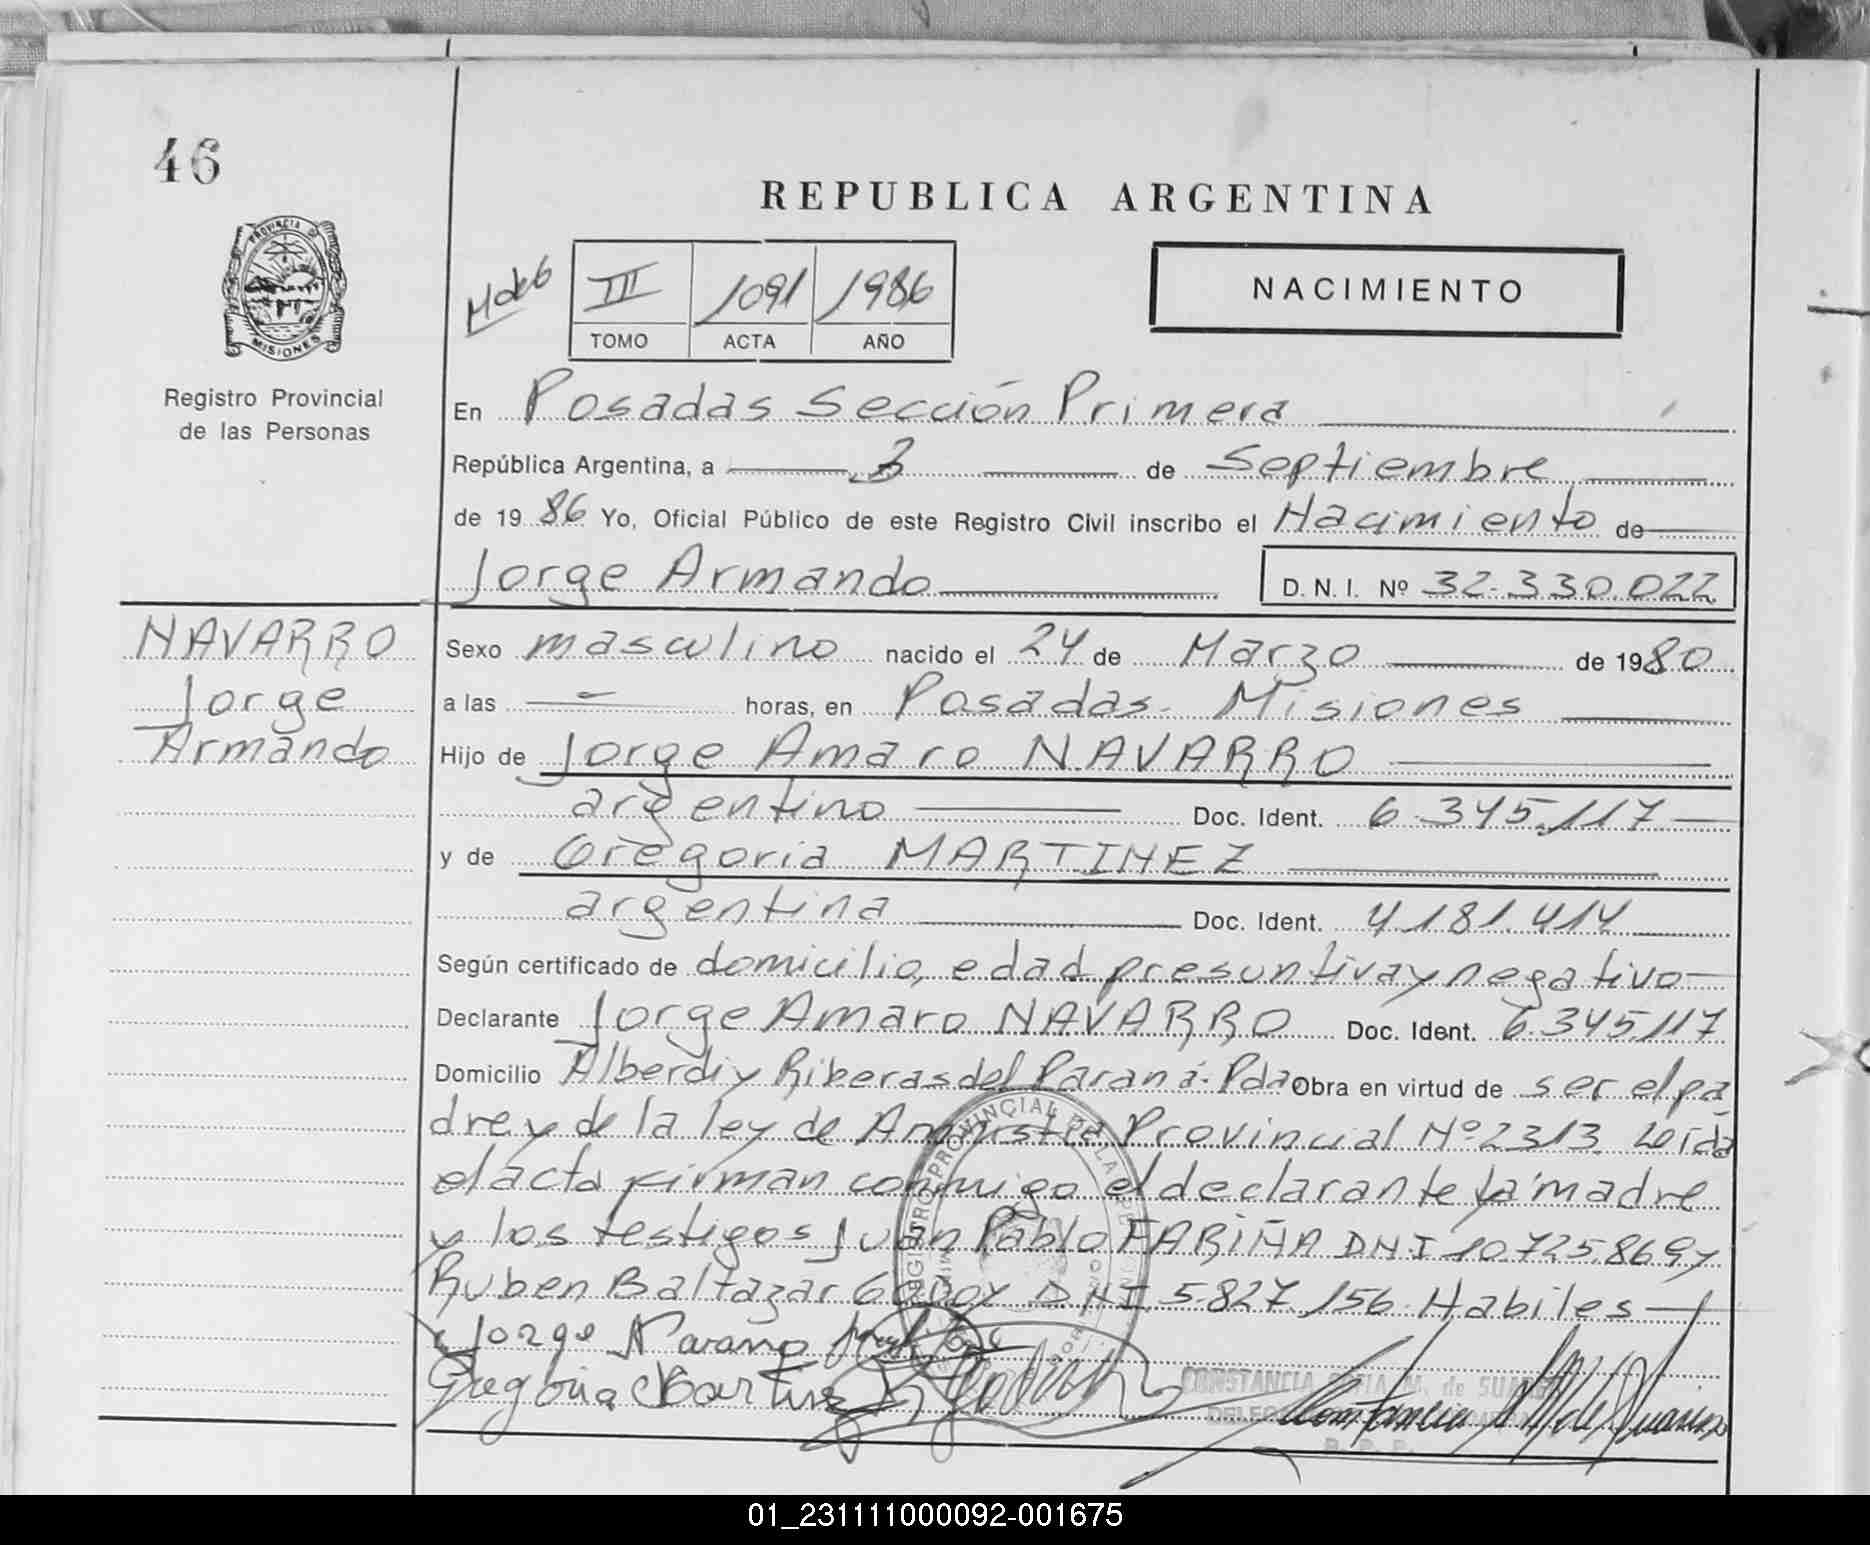 46
REPUBLICA ARGENTINA
PROVINCIA DE
MISIONES
III 1091 1986
TOMO ACTA AÑO
NACIMIENTO
Registro Provincial
de las Personas
En Posadas Sección Primera
República Argentina, a 3 de Septiembre
de 1986 Yo, Oficial Público de este Registro Civil inscribo el Nacimiento de
Jorge Armando D.N.I. Nº 32.330.022
NAVARRO
Jorge
Armando
Sexo masculino nacido el 24 de Marzo de 1980
a las — horas, en Posadas. Misiones
Hijo de Jorge Amaro NAVARRO
argentino Doc. Ident. 6.345.117
y de Gregoria MARTINEZ
argentina Doc. Ident. 4.181.414
Según certificado de domicilio, edad presuntiva y negativo
Declarante Jorge Amaro NAVARRO Doc. Ident. 6.345.117
Domicilio Alberdi y Riberas del Paraná. Pdas Obra en virtud de ser el pa
dre y de la ley de Amnistia Provincial Nº 2313. Leida
el acta firman conmigo el declarante la madre
y los testigos Juan Pablo FARIÑA DNI 10.725.869 y
Ruben Baltazar Godoy DNI 5.827.156. Habiles
Jorge Navarro
Gregoria Martinez
REGISTRO PROVINCIAL DE LA PE
CONSTANCIA SOFIA M. de SUAREZ
R. P. P.
01_231111000092-001675